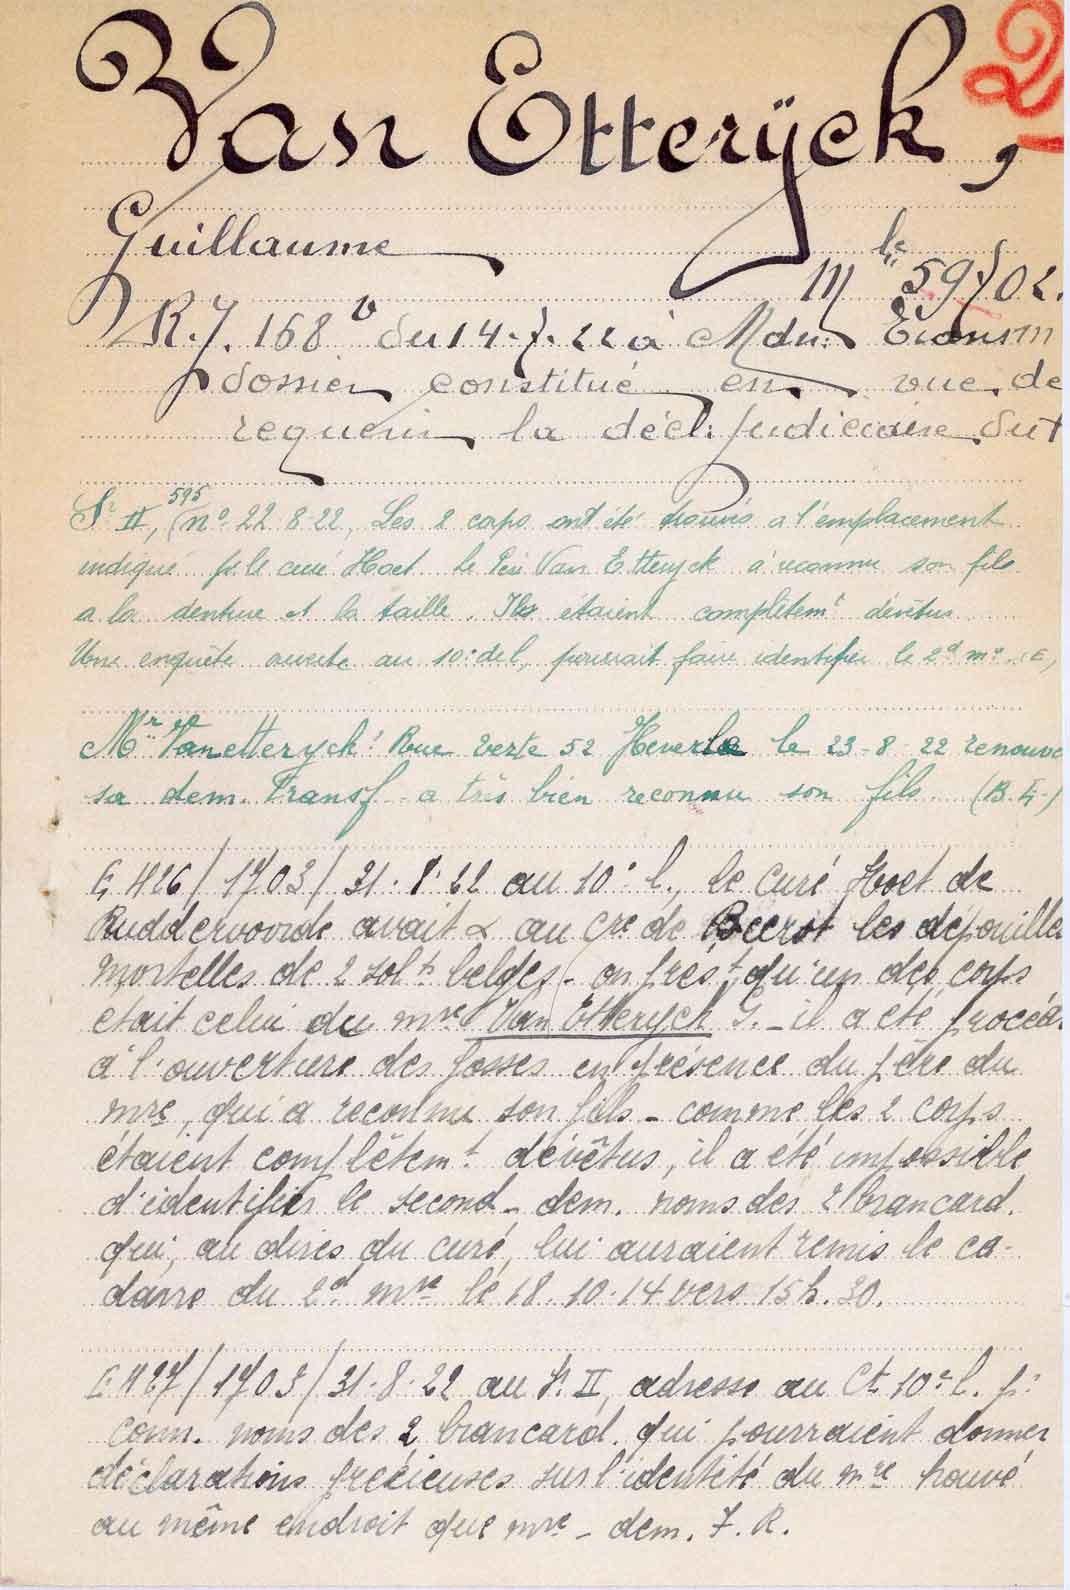 Van Etterÿck, 2
Guillaume
Mle 59/02.
R.J. 168 v du 14.7.22 à Mdu:
dossier constitué en vue de
requérir la décl. judiciaire du
Sr II, 595 (n° 22 8-22, Les 2 corps ont été trouvés a l'emplacement
indiqué pr le curé Hoet. Le Père Van Etteryck a reconnu son fils
a la denture et la taille. Ils étaient complètemt dévêtus
Une enquête ouverte au 10e de l, pourrait faire identifier le 2d mre (E,
Mr Vanetteryck: Rue Verte 52 Heverle le 23-8-22 renouve
sa dem. Transf. a très bien reconnu son fils (B.4.)
E 426/1703/31.8.22 au 10e l., le curé Hoet de
Ruddervoorde avait au Cre de Beerst les dépouilles
mortelles de 2 soldts belges - on prést qu'un des corps
était celui du mre Van Etteryck G. - il a été procéd
à l'ouverture des fosses en présence du père du
mre, qui a reconnu son fils - comme les 2 corps
étaient complètemt dévêtus, il a été impossible
d'identifier le second - dem. noms des 2 brancard.
qui, au dires du curé, lui auraient remis le ca-
davre du 2d mre le 18.10.14 vers 15h.30.
E 427/1703/31-8-22 au Sr II, adresse au Ct 10e l. pr
conn. noms des 2 brancard. qui pourraient donner
déclarations précieuses sur l'identité du mre trouvé
au même endroit que mre - dem. F. R.